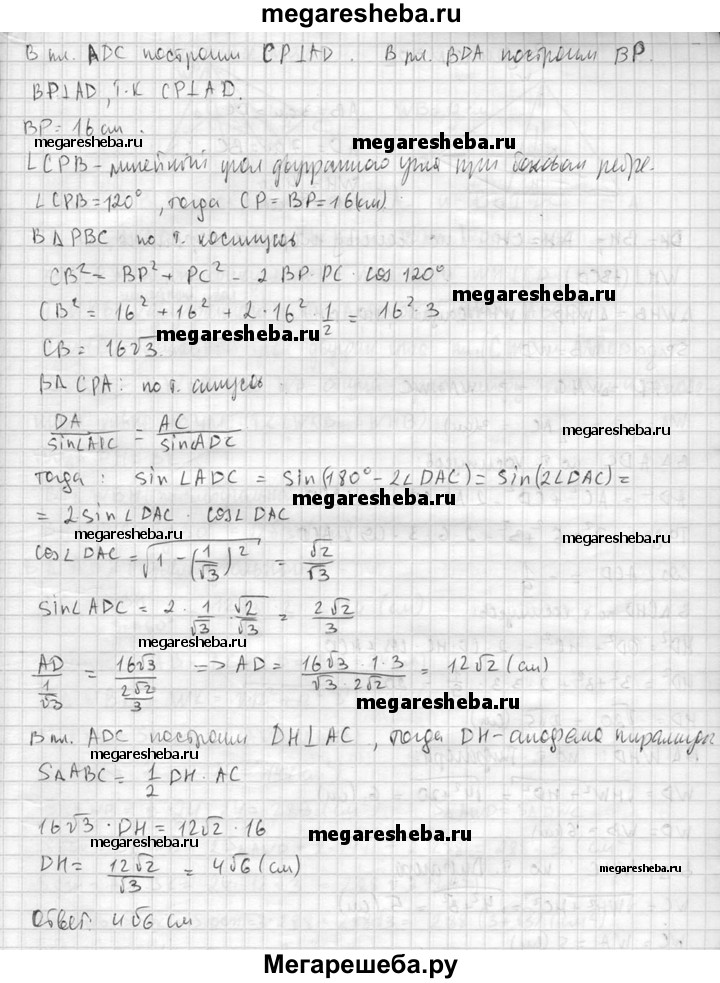 megaresheba.ru
В пл. ADC построим CP⊥AD. В пл. BDA построим BP.
BP⊥AD, т.к CP⊥AD.
BP = 16 см.
megaresheba.ru megaresheba.ru megaresheba.ru
∠CPB - линейный угол двугранного угла при боковом ребре.
∠CPB = 120°, тогда CP = BP = 16(см)
В Δ PBC по т. косинусов
CB² = BP² + PC² - 2 BP·PC · cos 120°
megaresheba.ru
CB² = 16² + 16² + 2·16²·1/2 = 16²·3
megaresheba.ru
CB = 16√3.
В Δ CPA: по т. синусов
DA/sin∠AIC = AC/sin∠ADC
megaresheba.ru
тогда: sin ∠ADC = sin(180° - 2∠DAC) = sin(2∠DAC) =
megaresheba.ru
= 2 sin ∠DAC · cos∠DAC
megaresheba.ru megaresheba.ru
cos∠DAC = √(1 - (1/√3)²) = √2/√3
sin∠ADC = 2 · 1/√3 · √2/√3 = 2√2/3
megaresheba.ru
AD/(1/√3) = 16√3/(2√2/3) => AD = 16√3·1·3/(√3·2√2) = 12√2 (см)
megaresheba.ru
В пл. ADC построим DH⊥AC, тогда DH - апофема пирамиды
megaresheba.ru
SΔABC = 1/2 DH · AC
megaresheba.ru
16√3 · DH = 12√2 · 16
megaresheba.ru megaresheba.ru
DH = 12√2/√3 = 4√6 (см)
megaresheba.ru
Ответ: 4√6 см
Мегарешеба.ру